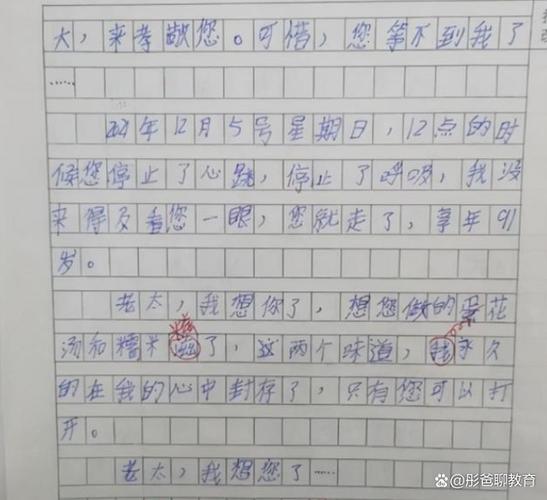 大，来孝敬您。可惜，您等不到我了
……
2021年12月5号星期日，12点的时
候您停止了心跳，停止了呼吸，我没
来得及看您一眼，您就走了，享年91
岁。
老太，我想你了，想您做的蛋花
糍
汤和糯米滋了，这两个味道，我永久
的在我的心中封存了，只有您可以打
开。
老太，我想您了……
@彤爸聊教育